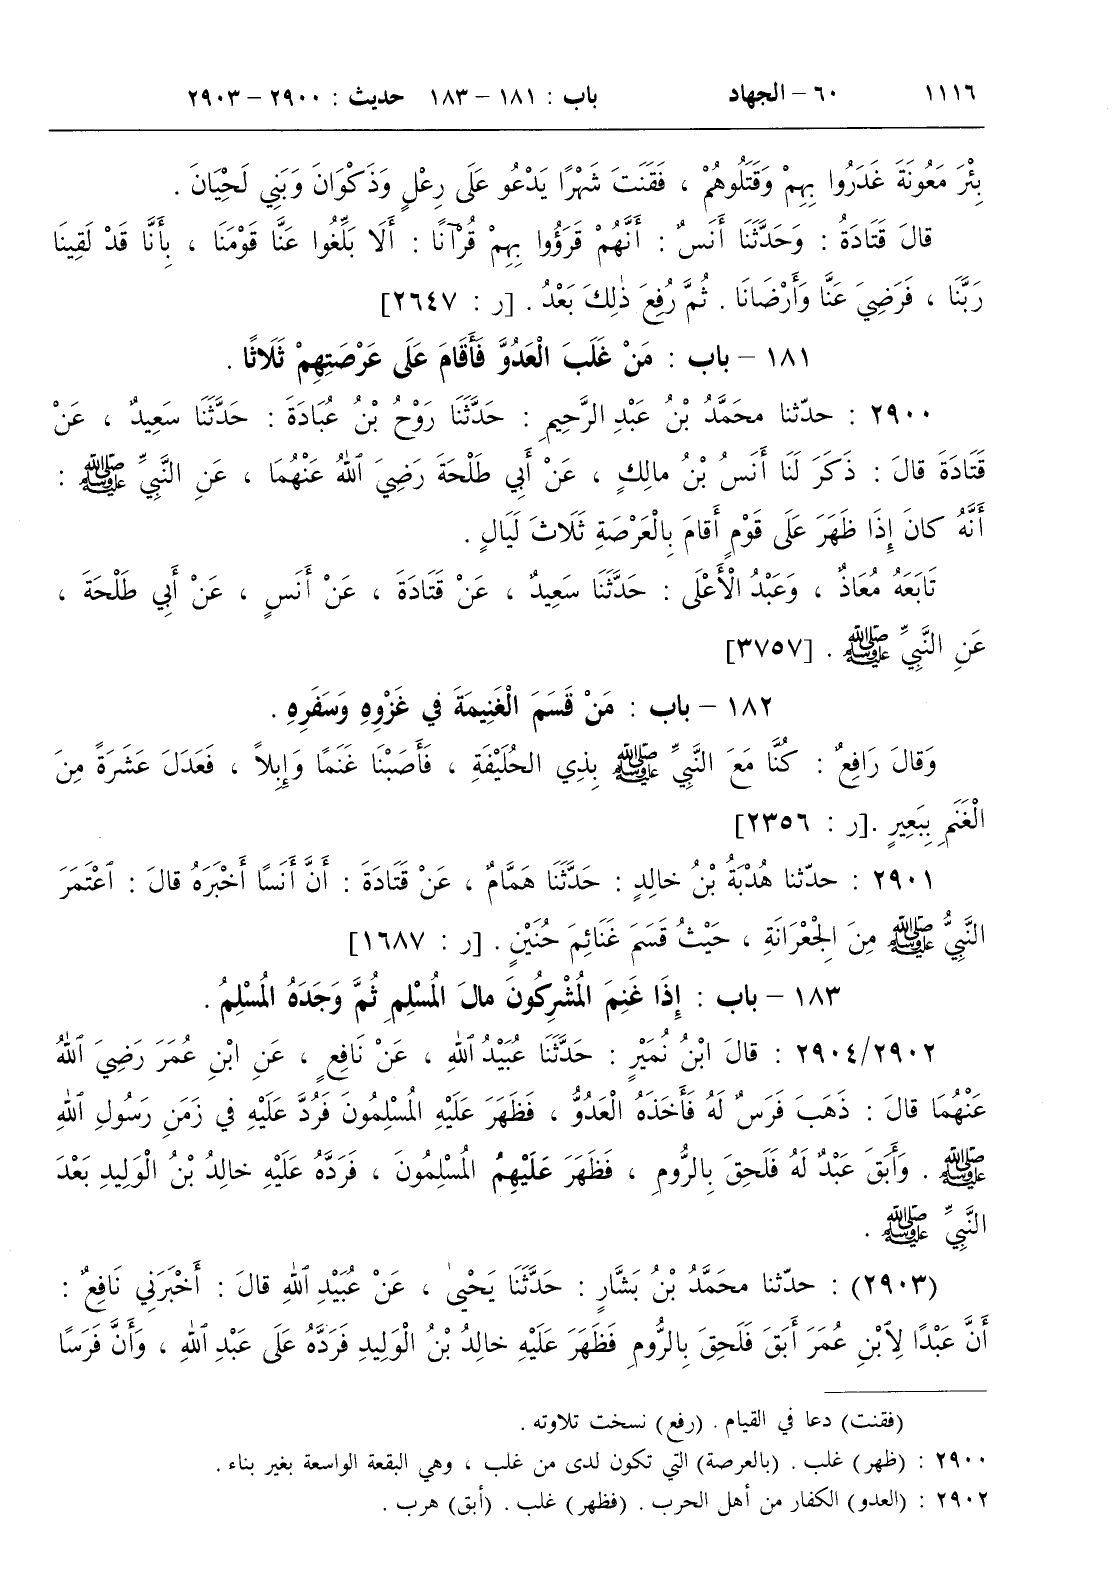 ١١١٦ ٦٠ – الجهاد باب : ١٨١ – ١٨٣ حديث : ٢٩٠٠ – ٢٩٠٣
بِئْرَ مَعُونَةَ غَدَرُوا بِهِمْ وَقَتَلُوهُمْ ، فَقَنَتَ شَهْرًا يَدْعُو عَلَى رِعْلٍ وَذَكْوَانَ وَبَنِي لَحْيَانَ .
قالَ قَتَادَةُ : وَحَدَّثَنَا أَنَسٌ : أَنَّهُمْ قَرَؤُوا بِهِمْ قُرْآنًا : أَلَا بَلِّغُوا عَنَّا قَوْمَنَا ، بِأَنَّا قَدْ لَقِينَا
رَبَّنَا ، فَرَضِيَ عَنَّا وَأَرْضَانَا . ثُمَّ رُفِعَ ذٰلِكَ بَعْدُ . [ر : ٢٦٤٧]
١٨١ – باب : مَنْ غَلَبَ الْعَدُوَّ فَأَقَامَ عَلَى عَرْصَتِهِمْ ثَلَاثًا .
٢٩٠٠ : حدّثنا محَمَّدُ بْنُ عَبْدِ الرَّحِيمِ : حَدَّثَنَا رَوْحُ بْنُ عُبَادَةَ : حَدَّثَنَا سَعِيدٌ ، عَنْ
قَتَادَةَ قالَ : ذَكَرَ لَنَا أَنَسُ بْنُ مالِكٍ ، عَنْ أَبِي طَلْحَةَ رَضِيَ ٱللهُ عَنْهُمَا ، عَنِ النَّبِيِّ ﷺ :
أَنَّهُ كانَ إِذَا ظَهَرَ عَلَى قَوْمٍ أَقامَ بِالْعَرْصَةِ ثَلَاثَ لَيَالٍ .
تَابَعَهُ مُعَاذٌ ، وَعَبْدُ الْأَعْلَى : حَدَّثَنَا سَعِيدٌ ، عَنْ قَتَادَةَ ، عَنْ أَنَسٍ ، عَنْ أَبِي طَلْحَةَ ،
عَنِ النَّبِيِّ ﷺ . [٣٧٥٧]
١٨٢ – باب : مَنْ قَسَمَ الْغَنِيمَةَ في غَزْوِهِ وَسَفَرِهِ .
وَقالَ رَافِعٌ : كُنَّا مَعَ النَّبِيِّ ﷺ بِذِي الحُلَيْفَةِ ، فَأَصَبْنَا غَنَمًا وَإِبِلاً ، فَعَدَلَ عَشَرَةً مِنَ
الْغَنَمِ بِبَعِيرٍ .[ر : ٢٣٥٦]
٢٩٠١ : حدّثنا هُدْبَةُ بْنُ خالِدٍ : حَدَّثَنَا هَمَّامٌ ، عَنْ قَتَادَةَ : أَنَّ أَنَسًا أَخْبَرَهُ قالَ : ٱعْتَمَرَ
النَّبِيُّ ﷺ مِنَ الجِعْرَانَةِ ، حَيْثُ قَسَمَ غَنَائِمَ حُنَيْنٍ . [ر : ١٦٨٧]
١٨٣ – باب : إِذَا غَنِمَ الْمُشْرِكُونَ مالَ الْمُسْلِمِ ثُمَّ وَجَدَهُ الْمُسْلِمُ .
٢٩٠٤/٢٩٠٢ : قالَ ابْنُ نُمَيْرٍ : حَدَّثَنَا عُبَيْدُ ٱللهِ ، عَنْ نَافِعٍ ، عَنِ ابْنِ عُمَرَ رَضِيَ ٱللهُ
عَنْهُمَا قالَ : ذَهَبَ فَرَسٌ لَهُ فَأَخَذَهُ الْعَدُوُّ ، فَظَهَرَ عَلَيْهِ الْمُسْلِمُونَ فَرُدَّ عَلَيْهِ في زَمَنِ رَسُولِ ٱللهِ
ﷺ . وَأَبَقَ عَبْدٌ لَهُ فَلَحِقَ بِالرُّومِ ، فَظَهَرَ عَلَيْهِمُ الْمُسْلِمُونَ ، فَرَدَّهُ عَلَيْهِ خالِدُ بْنُ الْوَلِيدِ بَعْدَ
النَّبِيِّ ﷺ .
(٢٩٠٣) : حدّثنا محَمَّدُ بْنُ بَشَّارٍ : حَدَّثَنَا يَحْيىٰ ، عَنْ عُبَيْدِ ٱللهِ قالَ : أَخْبَرَنِي نَافِعٌ :
أَنَّ عَبْدًا لِٱبْنِ عُمَرَ أَبَقَ فَلَحِقَ بِالرُّومِ فَظَهَرَ عَلَيْهِ خالِدُ بْنُ الْوَلِيدِ فَرَدَّهُ عَلَى عَبْدِ ٱللهِ ، وَأَنَّ فَرَسًا
(فقنت) دعا في القيام . (رفع) نسخت تلاوته .
٢٩٠٠ : (ظهر) غلب . (بالعرصة) التي تكون لدى من غلب ، وهي البقعة الواسعة بغير بناء .
٢٩٠٢ : (العدو) الكفار من أهل الحرب . (فظهر) غلب . (أبق) هرب .